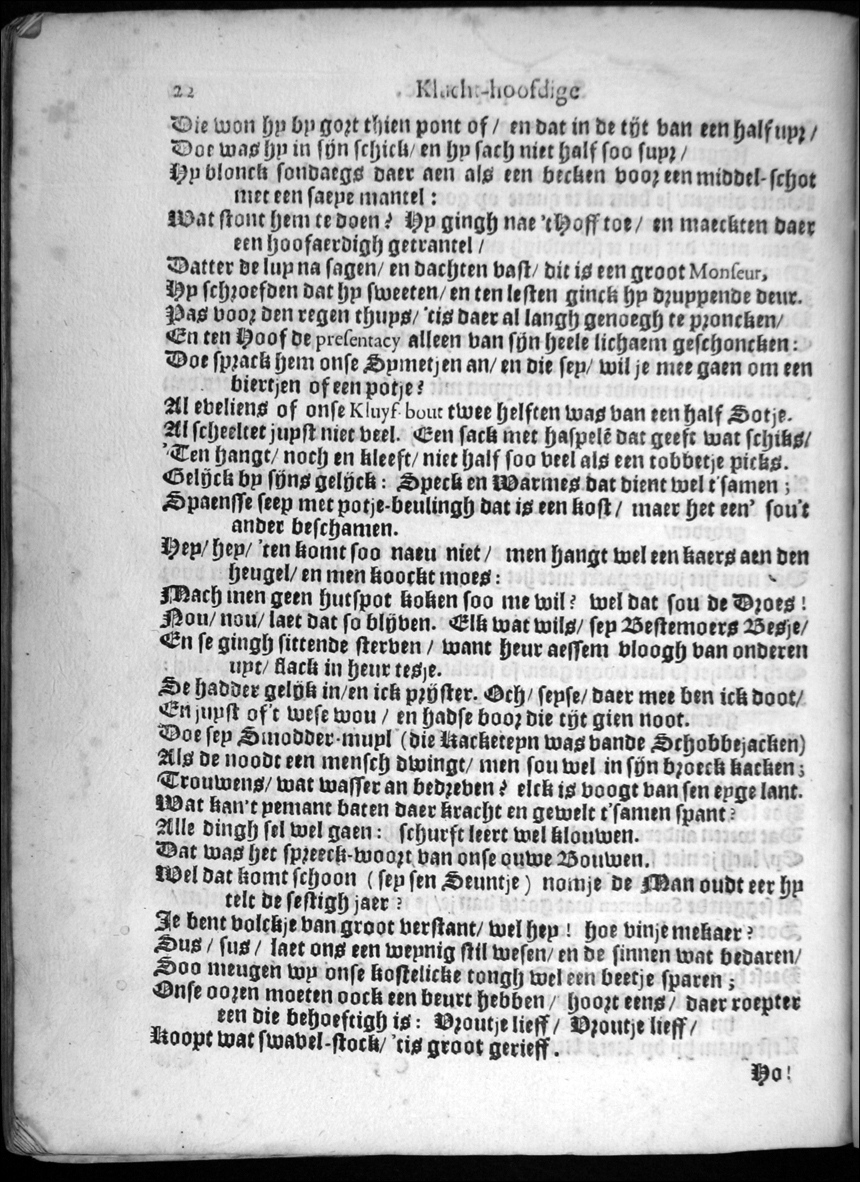 22 Klucht-hoofdige
Die won hy by gort thien pont of/ en dat in de tijt van een half uyr/
Doe was hy in sijn schick/ en hy sach niet half soo suyr/
Hy blonck sondaegs daer aen als een becken voor een middel-schot
met een saeye mantel:
Wat stont hem te doen? Hy gingh nae 't Hoff toe/ en maeckten daer
een hoofaerdigh getrantel/
Datter de luy na sagen/ en dachten vast/ dit is een groot Monseur,
Hy schroefden dat hy sweeten/ en ten lesten ginck hy druppende deur.
Pas voor den regen thuys/ 'tis daer al langh genoegh te proncken/
En ten Hoof de presentacy alleen van sijn heele lichaem geschoncken:
Doe sprack hem onse Symetjen an/ en die sey/ wil je mee gaen om een
biertjen of een potje?
Al eveliens of onse Kluyf-bout twee helften was van een half Sotje.
Al scheeltet juyst niet veel. Een sack met haspelē dat geeft wat schiks/
'Ten hangt/ noch en kleeft/ niet half soo veel als een tobbetje picks.
Gelijck by sijns gelijck: Speck en Warmes dat dient wel t'samen;
Spaensse seep met potje-beulingh dat is een kost/ maer het een' sou't
ander beschamen.
Hey/ hey/ 'ten komt soo naeu niet/ men hangt wel een kaers aen den
heugel/ en men koockt moes:
Mach men geen hutspot koken soo me wil? wel dat sou de Droes!
Nou/ nou/ laet dat so blijven. Elk wat wils/ sey Bestemoers Besje/
En se gingh sittende sterven/ want heur aessem vloogh van onderen
uyt/ flack in heur tesje.
Se hadder gelijk in/ en ick prijster. Och/ seyse/ daer mee ben ick doot/
En juyst of't wese wou/ en hadse voor die tijt gien noot.
Doe sey Smodder-muyl (die Kacketeyn was vande Schobbejacken)
Als de noodt een mensch dwingt/ men sou wel in sijn broeck kacken;
Trouwens/ wat wasser an bedreven? elck is voogt van sen eyge lant.
Wat kan't yemant baten daer kracht en gewelt t'samen spant?
Alle dingh sel wel gaen: schurft leert wel klouwen.
Dat was het spreeck-woort van onse ouwe Bouwen.
Wel dat komt schoon (sey sen Seuntje) nomje de Man oudt eer hy
telt de sestigh jaer?
Je bent volckje van groot verstant/ wel hey! hoe vinje mekaer?
Sus/ sus/ laet ons een weynig stil wesen/ en de sinnen wat bedaren/
Soo meugen wy onse kostelicke tongh wel een beetje sparen;
Onse ooren moeten oock een beurt hebben/ hoort eens/ daer roepter
een die behoeftigh is: Vroutje lieff/ Vroutje lieff/
Koopt wat swavel-stock/ 'tis groot gerieff.
Ho!